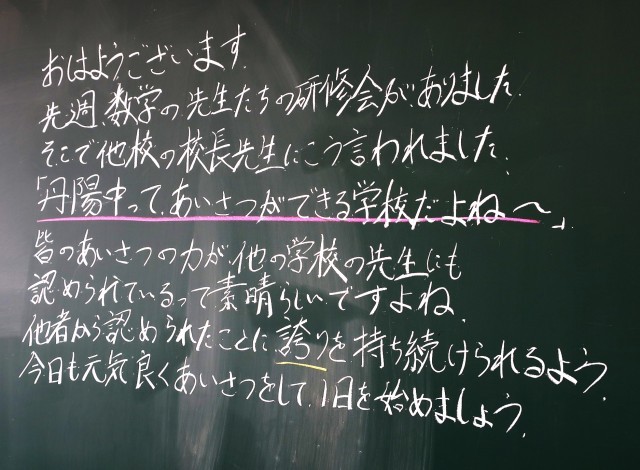 おはようございます.
先週 数学の先生たちの研修会がありました.
そこで他校の校長先生にこう言われました.
「丹陽中って、あいさつができる学校だよね〜」
皆のあいさつの力が、他の学校の先生にも
認められているって素晴らしいですよね.
他者から認められたことに、誇りを持ち続けられるよう.
今日も元気良くあいさつをして、1日を始めましょう.